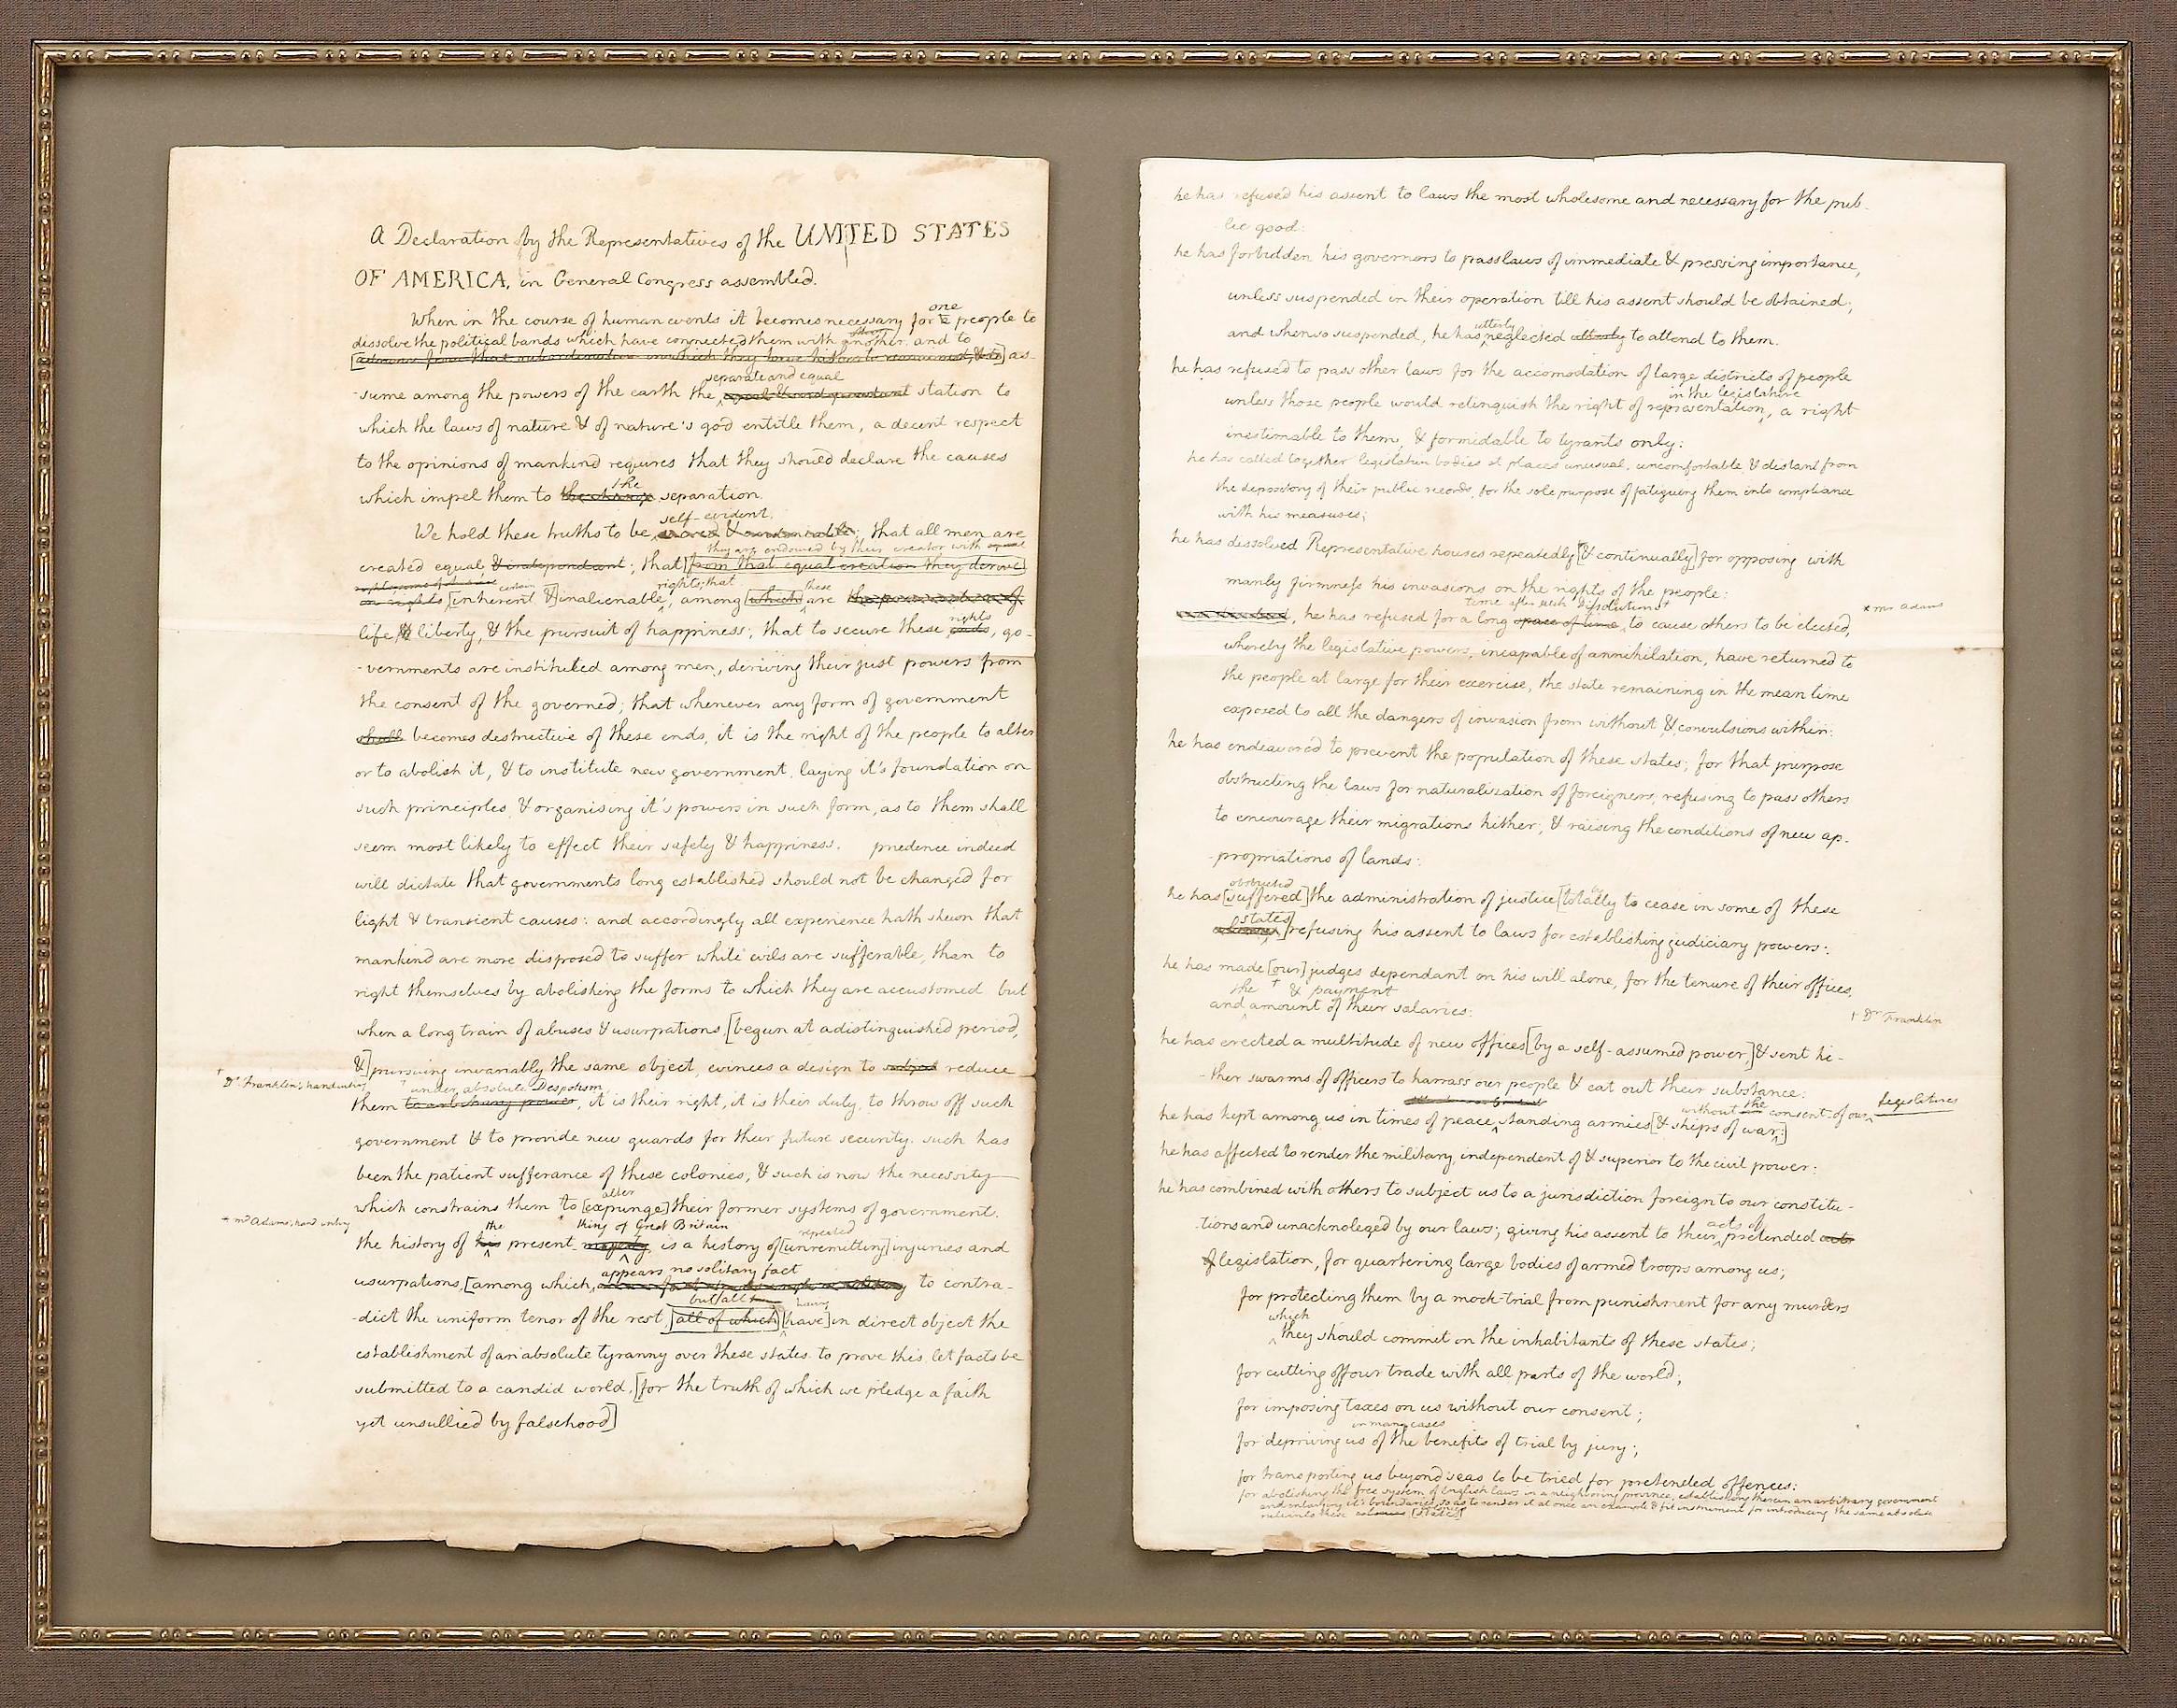 a Declaration by the Representatives of the UNITED STATES
OF AMERICA, in General Congress assembled.
one
When in the course of human events it becomes necessary for a people to
dissolve the political bands which have connected them with another, and to
as-
separate and equal
-sume among the powers of the earth the station to
which the laws of nature & of nature's god entitle them, a decent respect
to the opinions of mankind requires that they should declare the causes
the
which impel them to the change separation.
self-evident,
We hold these truths to be sacred & undeniable; that all men are
they are endowed by their creator with equal
created equal & independant; that [from that equal creation they derive]
certain rights; that these
[inherent &] inalienable, among [which] are
rights
life & liberty, & the pursuit of happiness; that to secure these ends, go-
-vernments are instituted among men, deriving their just powers from
the consent of the governed; that whenever any form of government
shall becomes destructive of these ends, it is the right of the people to alter
or to abolish it, & to institute new government, laying it's foundation on
such principles & organising it's powers in such form, as to them shall
seem most likely to effect their safety & happiness. prudence indeed
will dictate that governments long established should not be changed for
light & transient causes: and accordingly all experience hath shewn that
mankind are more disposed to suffer while evils are sufferable, than to
right themselves by abolishing the forms to which they are accustomed. but
when a long train of abuses & usurpations, [begun at a distinguished period,
&] pursuing invariably the same object, evinces a design to subject reduce
† Dr. Franklin's handwriting † under absolute Despotism
them to arbitrary power, it is their right, it is their duty, to throw off such
government & to provide new guards for their future security. such has
been the patient sufferance of these colonies, & such is now the necessity
alter
which constrains them to [expunge] their former systems of government.
* mr Adams' hand writing the * king of Great Britain repeated
the history of his present majesty is a history of [unremitting] injuries and
appears no solitary fact
usurpations, [among which, to contra-
but all having
-dict the uniform tenor of the rest [all of which] [have] in direct object the
establishment of an absolute tyranny over these states. to prove this, let facts be
submitted to a candid world, [for the truth of which we pledge a faith
yet unsullied by falsehood]
he has refused his assent to laws the most wholesome and necessary for the pub-
lic good:
he has forbidden his governors to pass laws of immediate & pressing importance,
unless suspended in their operation till his assent should be obtained;
utterly
and when so suspended, he has neglected utterly to attend to them.
he has refused to pass other laws for the accomodation of large districts of people
in the legislature
unless those people would relinquish the right of representation, a right
inestimable to them, & formidable to tyrants only:
he has called together legislative bodies at places unusual, uncomfortable, & distant from
the depository of their public records, for the sole purpose of fatiguing them into compliance
with his measures;
he has dissolved Representative houses repeatedly [& continually] for opposing with
manly firmness his invasions on the rights of the people:
time after such Dissolutions* * mr Adams
he has refused for a long space of time, to cause others to be elected,
whereby the legislative powers, incapable of annihilation, have returned to
the people at large for their exercise, the state remaining in the mean time
exposed to all the dangers of invasion from without & convulsions within:
he has endeavored to prevent the population of these states; for that purpose
obstructing the laws for naturalization of foreigners; refusing to pass others
to encourage their migrations hither; & raising the conditions of new ap-
-propriations of lands:
obstructed by
he has [suffered] the administration of justice [totally to cease in some of these
states
colonies] refusing his assent to laws for establishing judiciary powers:
he has made [our] judges dependant on his will alone, for the tenure of their offices,
the † & payment
and amount of their salaries: † Dr Franklin
he has erected a multitude of new offices [by a self-assumed power,] & sent hi-
-ther swarms of officers to harrass our people & eat out their substance:
without the consent of our legislatures
he has kept among us in times of peace, standing armies [& ships of war:]
he has affected to render the military, independent of & superior to the civil power:
he has combined with others to subject us to a jurisdiction foreign to our constitu-
acts of
-tions and unacknoleged by our laws; giving his assent to their pretended acts
of legislation, for quartering large bodies of armed troops among us;
for protecting them by a mock-trial from punishment for any murders
which
they should commit on the inhabitants of these states;
for cutting off our trade with all parts of the world;
for imposing taxes on us without our consent;
in many cases
for depriving us of the benefits of trial by jury;
for transporting us beyond seas to be tried for pretended offences:
for abolishing the free system of English laws in a neighboring province, establishing therein an arbitrary government
and enlarging it's boundaries so as to render it at once an example & fit instrument for introducing the same absolute
colonies
rule into these colonies [states]